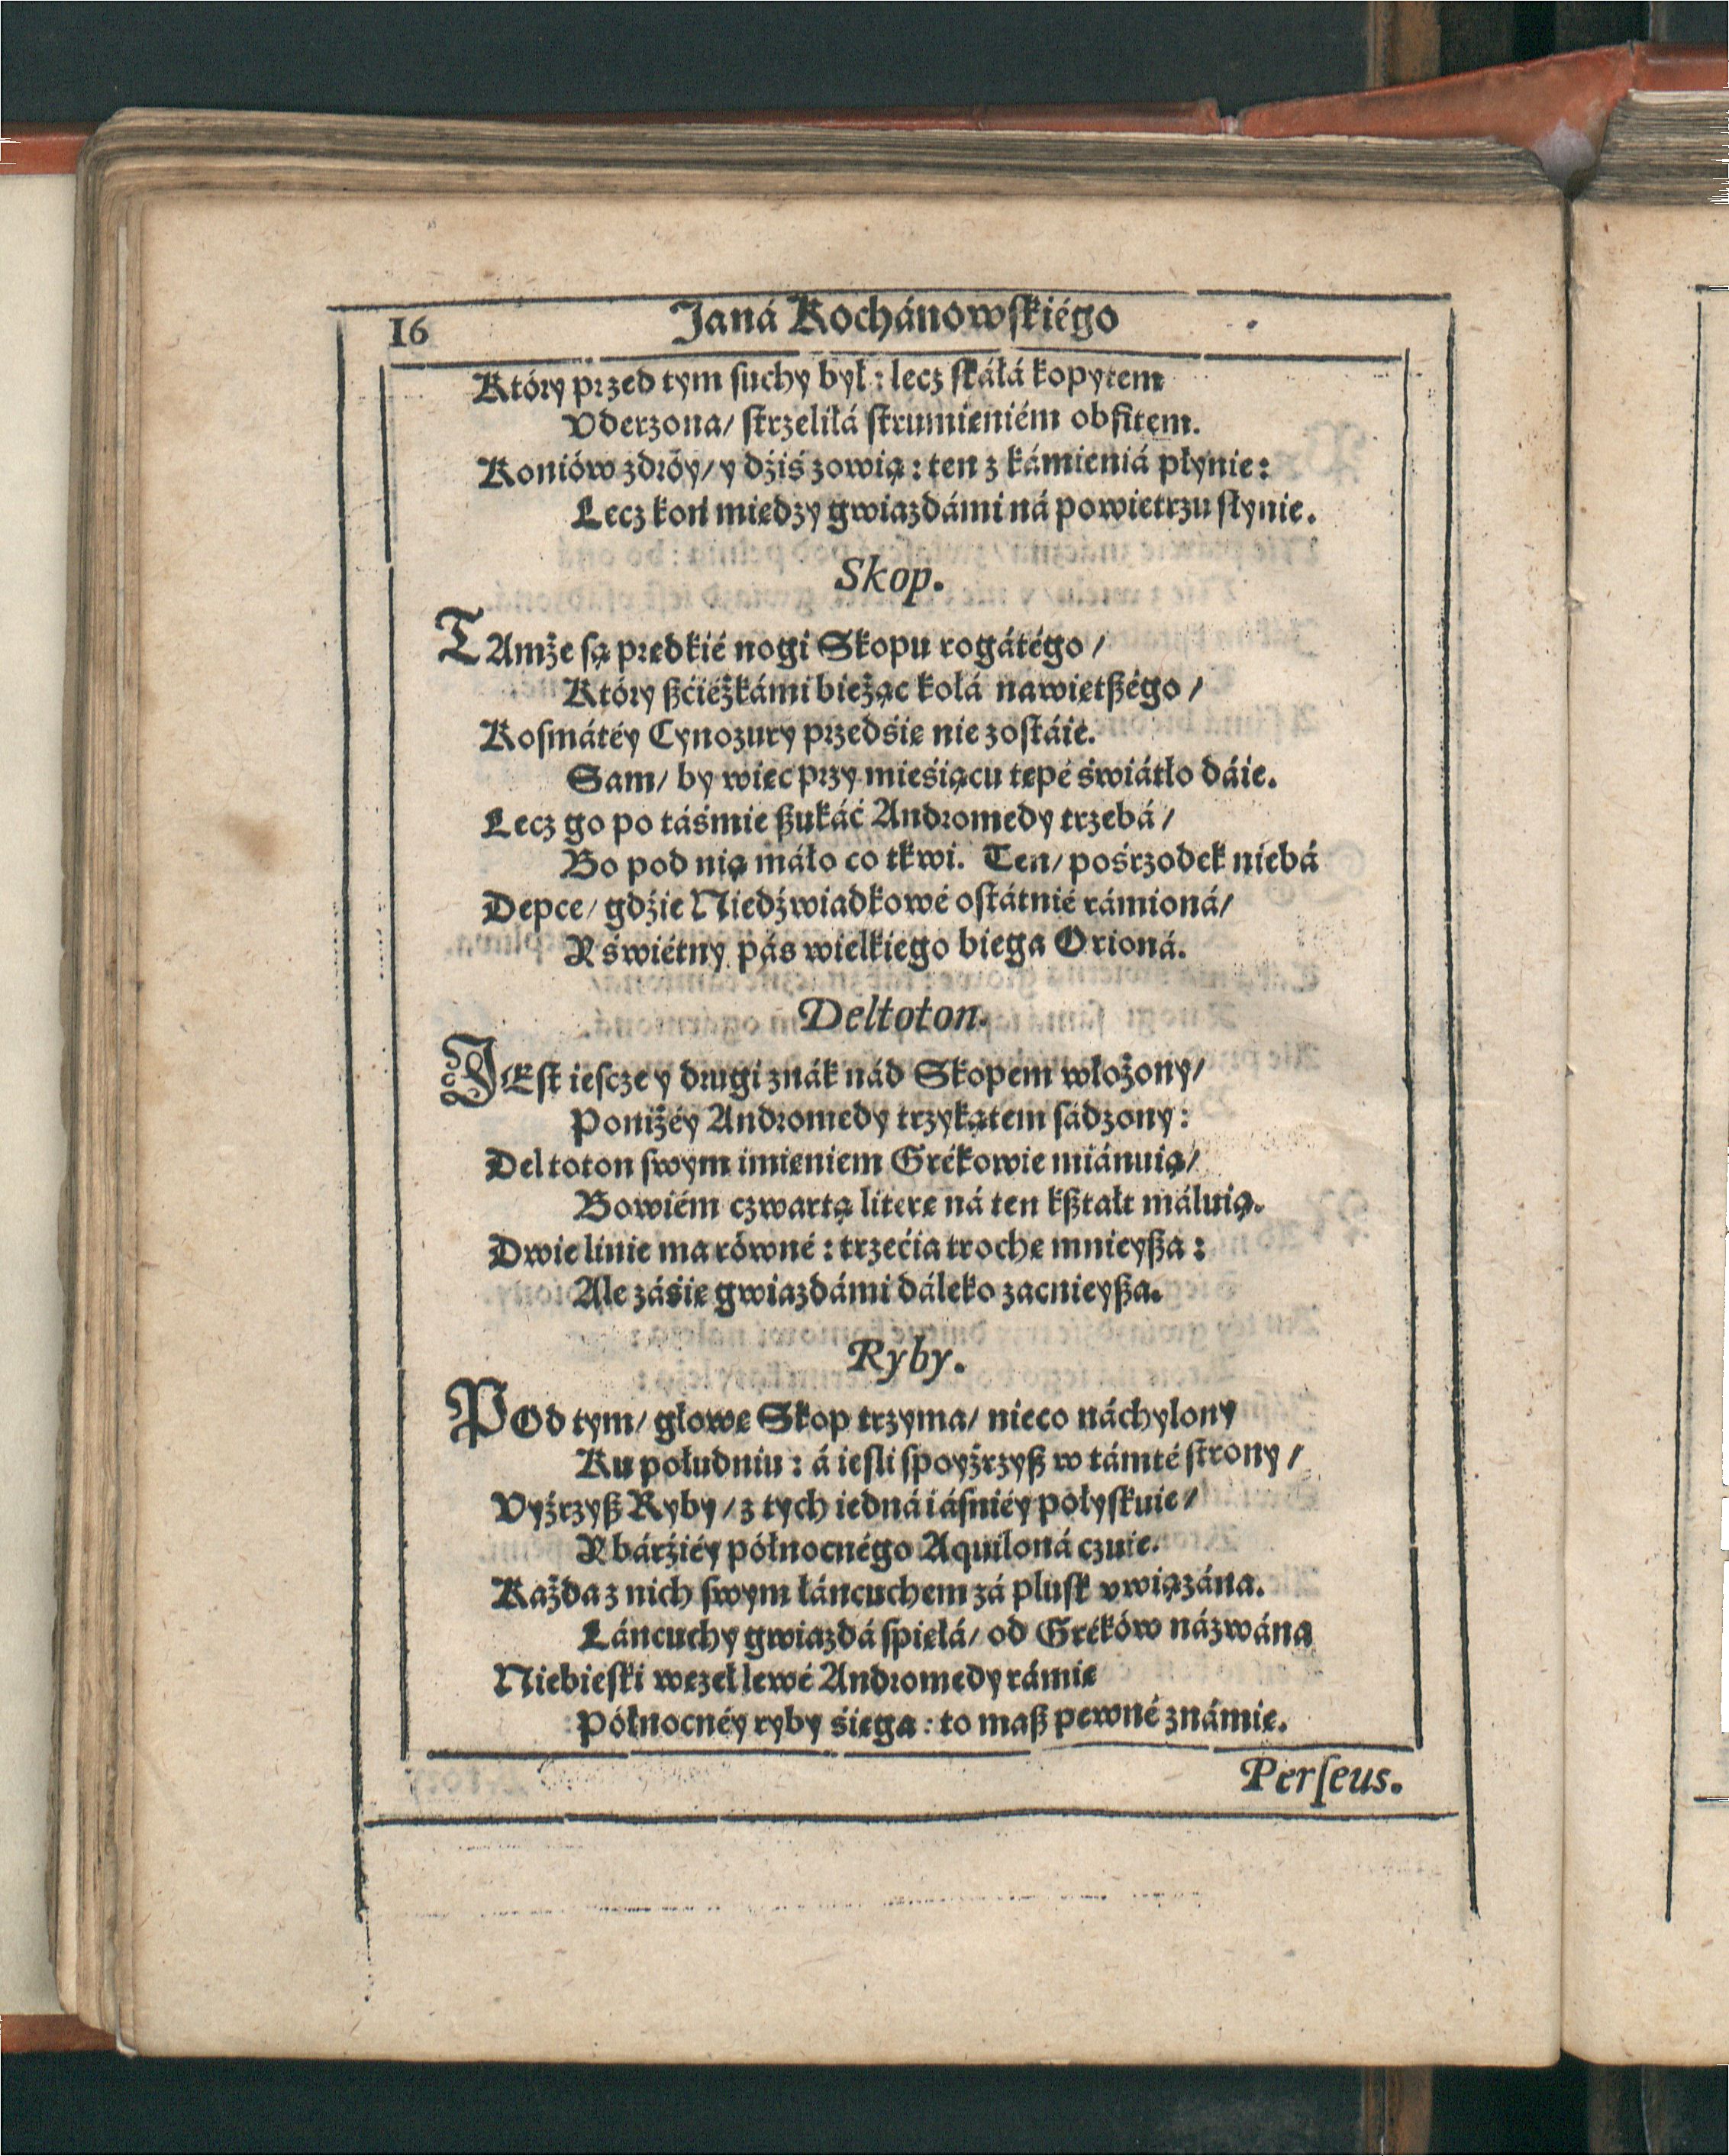 16 Janá Kochánowſkiégo
Który przed tym ſuchy był: lecz ſkáłá kopytem
Vderzona/ ſtrzeliłá ſtrumieniém obfitem.
Koniów zdróy/ y dźiś zowią: ten z kámieniá płynie:
Lecz koń między gwiazdámi ná powietrzu ſłynie.
Skop.
TAmże ſą prędkié nogi Skopu rogátégo/
Który ßćieżkámi bieżąc kołá nawiętßégo/
Koſmátéy Cynozury przedśię nie zoſtáie.
Sam/ by więc przy mieśiącu tępé świátło dáie.
Lecz go po táśmie ßukáć Andromedy trzebá/
Bo pod nią máło co tkwi. Ten/ pośrzodek niebá
Depce/ gdźie Niedźwiadkowé oſtátnié rámioná/
Y świétny pás wielkiego biega Orioná.
Deltoton.
JEſt ieſcze y drugi znák nád Skopem włożony/
Poniżéy Andromedy trzykątem ſádzony:
Deltoton ſwym imieniem Grékowie miánuią/
Bowiém czwartą literę ná ten kßtałt máluią.
Dwie linie ma równé: trzećia trochę mnieyßa:
Ale záśię gwiazdámi dáleko zacnieyßa.
Ryby.
POd tym/ głowę Skop trzyma/ nieco náchylony
Ku południu: á ieſli ſpoyźrzyß w támté ſtrony/
Vyźrzyß Ryby/ z tych iedná iáſniéy połyſkuie/
Y bárźiéy północnégo Aquiloná czuie.
Każda z nich ſwym łáncuchem zá pluſk vwiązána.
Láncuchy gwiazdá ſpięłá/ od Gréków názwána
Niebieſki węzeł lewé Andromedy rámię
Północnéy ryby śięga: to maß pewné známię.
Perſeus.